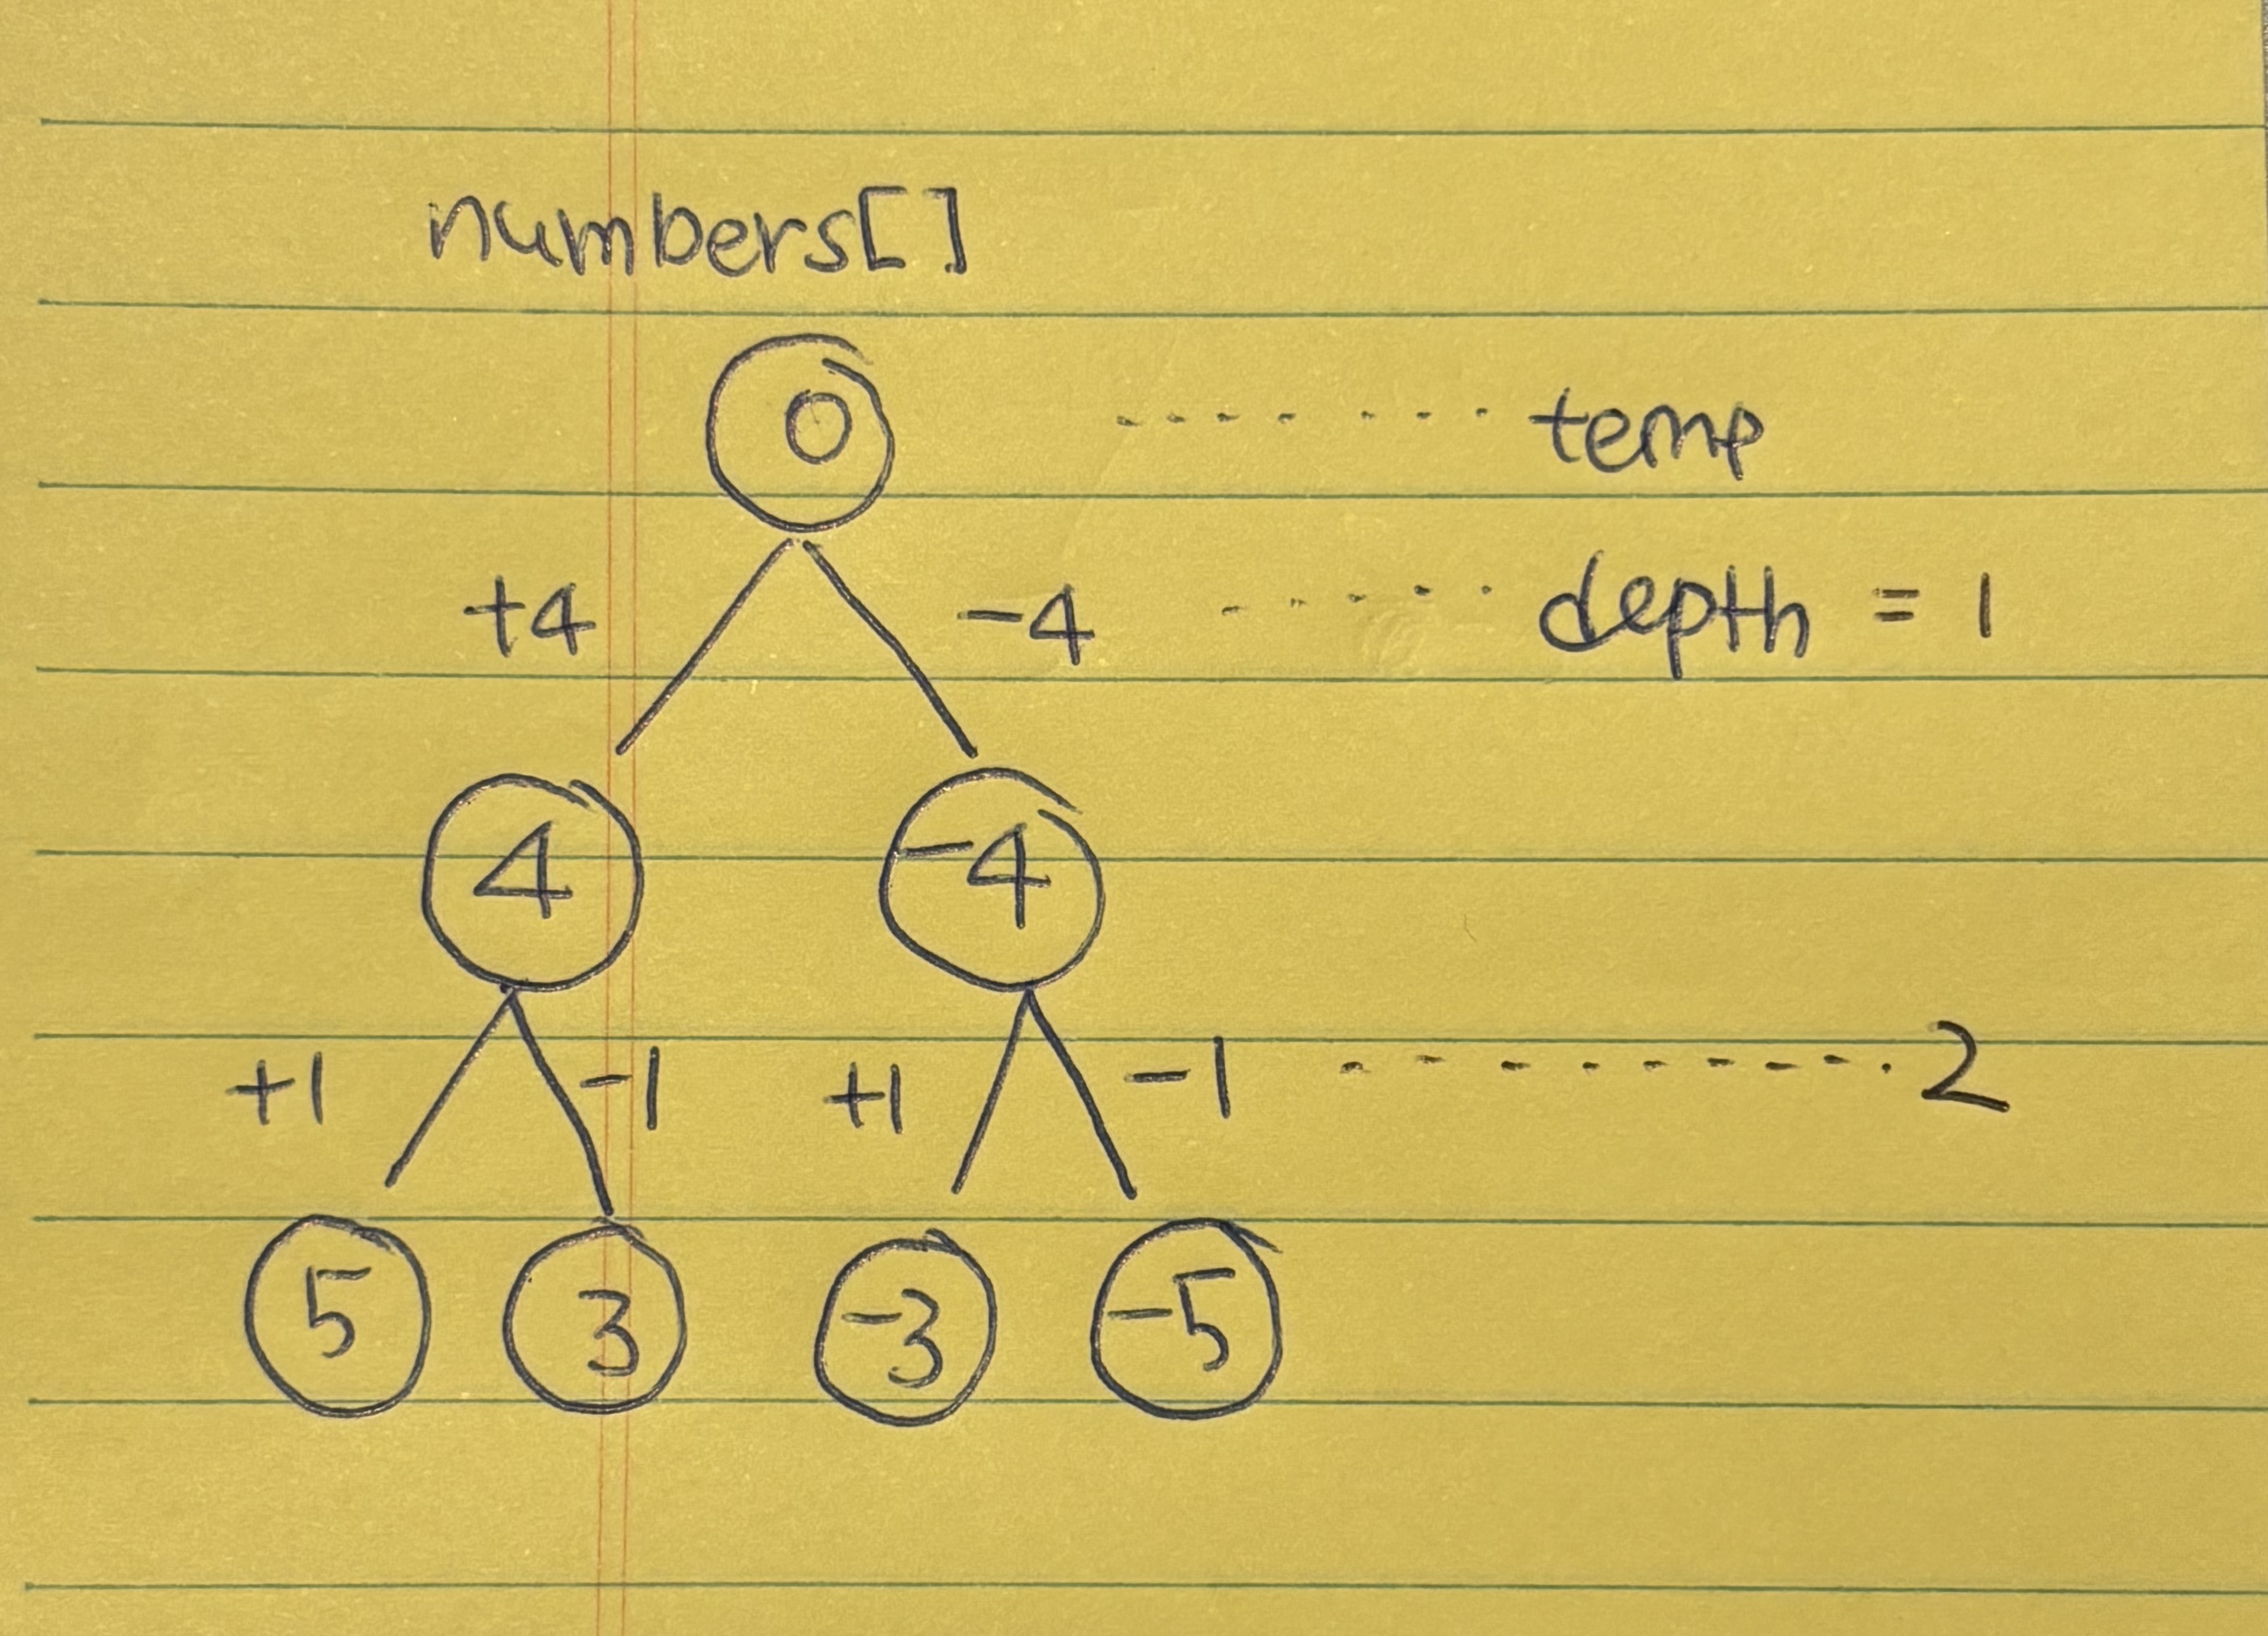 numbers[]
0 ........ temp
+4 -4 ..... depth = 1
4 -4
+1 -1 +1 -1 --------- 2
5 3 -3 -5